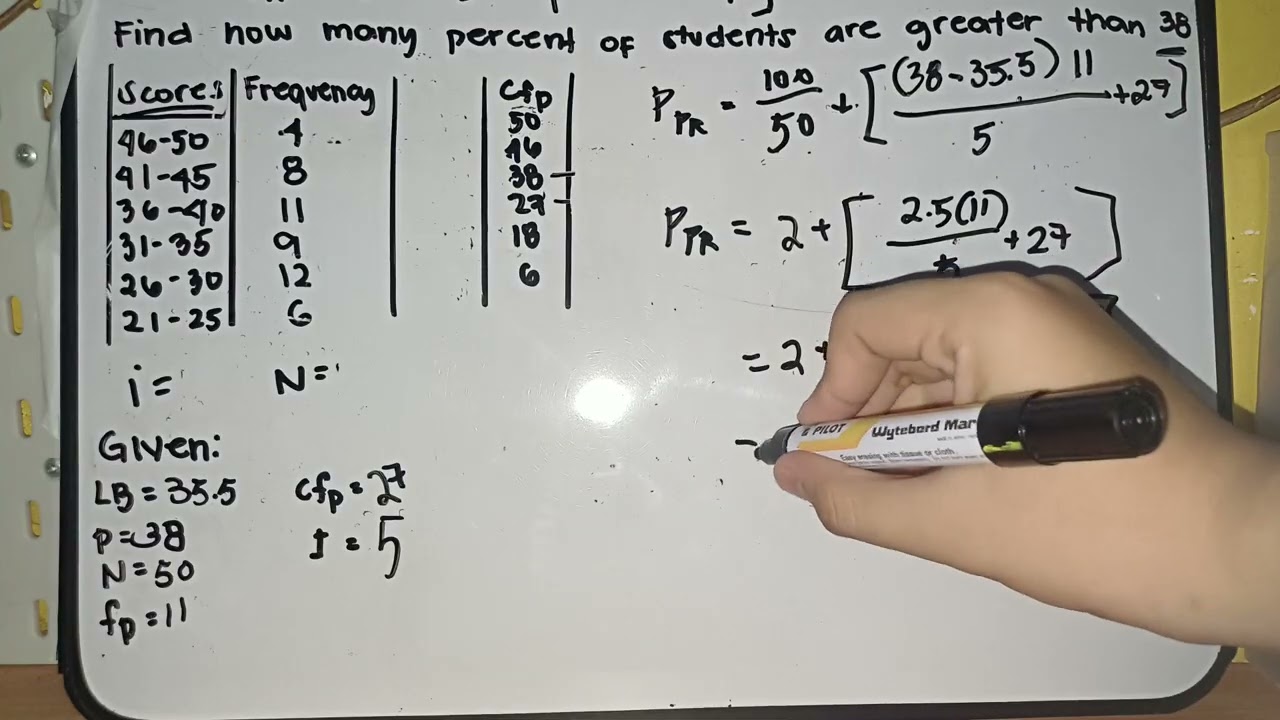 Find how many percent of students are greater than 38
Scores Frequency Cfp
46-50 4 50
41-45 8 46
36-40 11 38
31-35 9 27
26-30 12 18
21-25 6 6
i = N =
Given:
LB = 35.5 Cfp = 27
P = 38 I = 5
N = 50
fp = 11
P PR = 100/50 + [(38-35.5) 11/5 + 27]
P PR = 2 + [2.5(11)/5 + 27]
= 2 +
PILOT Wytebord Mar
Easy erasing with tissue or cloth